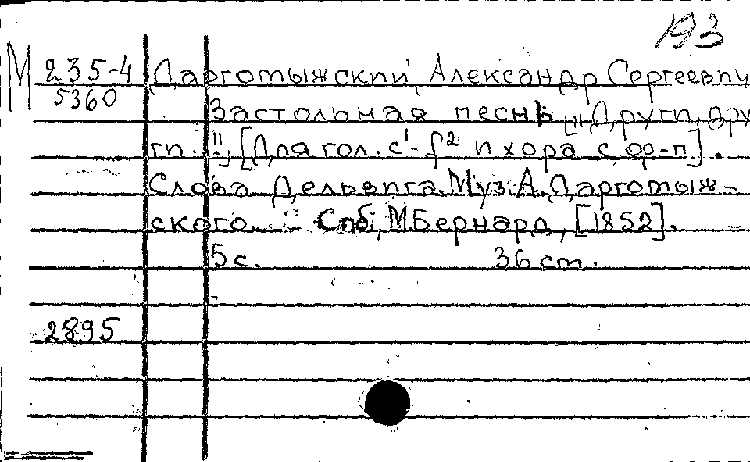 193
М 235-4 Даргомыжский, Александр Сергеевич
5360
Застольная песнь ["Други, дру-
ги.."]. [Для гол. c¹-f² и хора с ф-п].
Слова Дельвига. Муз. А. Даргомыж-
ского. Спб, М. Бернард, [1852].
5 с. 36 см.
2895